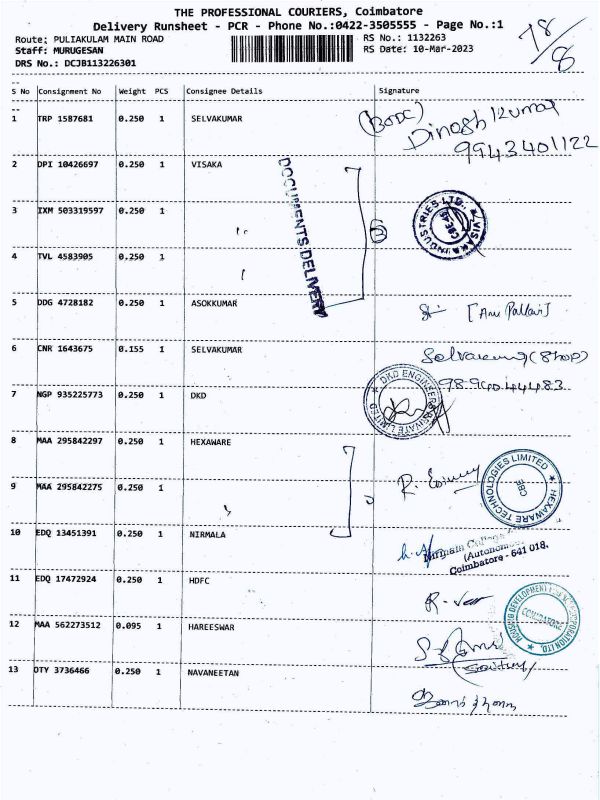 THE PROFESSIONAL COURIERS, Coimbatore
Delivery Runsheet - PCR - Phone No.:0422-3505555 - Page No.:1
Route: PULIAKULAM MAIN ROAD RS No.: 1132263
Staff: MURUGESAN RS Date: 10-Mar-2023
DRS No.: DCJB113226301
78/8
S No Consignment No Weight PCS Consignee Details Signature
1 TRP 1587681 0.250 1 SELVAKUMAR
Dinesh Kumar
9943401122
2 DPI 10426697 0.250 1 VISAKA
DOCUMENTS DELIVERY
3 IXM 503319597 0.250 1
VISAKA INDUSTRIES LTD.,
4 TVL 4583905 0.250 1
5 DDG 4728182 0.250 1 ASOKKUMAR
[Anu Pallavi]
6 CNR 1643675 0.155 1 SELVAKUMAR
Selvakumar (Shop)
7 NGP 935225773 0.250 1 DKD
DKD ENGINEERS PRIVATE LIMITED
8 MAA 295842297 0.250 1 HEXAWARE
HEXAWARE TECHNOLOGIES LIMITED
CBE
9 MAA 295842275 0.250 1
10 EDQ 13451391 0.250 1 NIRMALA
College
(Autonomous)
Coimbatore - 641 018.
11 EDQ 17472924 0.250 1 HDFC
HOUSING DEVELOPMENT FINANCE CORPORATION LTD.
COIMBATORE
12 MAA 562273512 0.095 1 HAREESWAR
13 OTY 3736466 0.250 1 NAVANEETAN